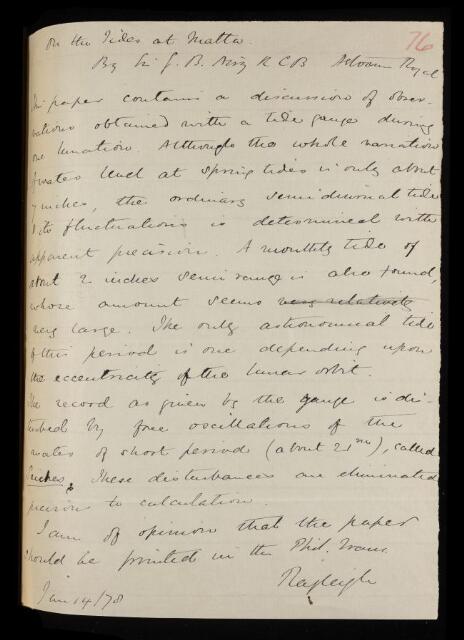 On the Tides at Malta.
76
By Sir G. B. Airy K C B Astron Royal
This paper contains a discussion of obser-
vations obtained with a tide gauge during
one lunation. Although the whole variation
of water level at spring tides is only about
7 inches, the ordinary semidiurnal tide
& its fluctuations is determined with
apparent precision. A monthly tide of
about 2 inches semi range is also found,
whose amount seems very relatively
very large. The only astronomical tide
of this period is one depending upon
the eccentricity of the lunar orbit.
The record as given by the gauge is dis-
turbed by free oscillations of the
water of short period (about 21 m), called
Seiches. These disturbances are eliminated
previous to calculation.
I am of opinion that the paper
should be printed in the Phil. Trans.
Rayleigh
Jan 14/78